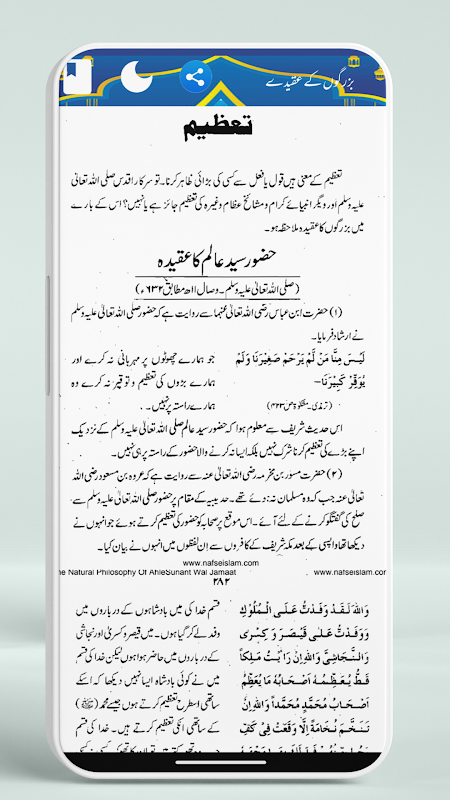 بزرگوں کے عقیدے
تعظیم
تعظیم کے معنی ہیں قول یا فعل سے کسی کی بڑائی ظاہر کرنا۔ تو سرکار اقدس صلی اللہ تعالیٰ
علیہ وسلم اور دیگر انبیائے کرام و مشائخ عظام وغیرہ کی تعظیم جائز ہے یا نہیں؟ اس کے بارے
میں بزرگوں کا عقیدہ ملاحظہ ہو۔
حضور سید عالم کا عقیدہ
(صلی اللہ تعالیٰ علیہ وسلم۔ وصال ۱۱ھ مطابق ۶۳۲ء)
(۱) حضرت ابن عباس رضی اللہ تعالیٰ عنہما سے روایت ہے کہ حضور صلی اللہ تعالیٰ علیہ وسلم
نے ارشاد فرمایا۔
لَیْسَ مِنَّا مَنْ لَّمْ یَرْحَمْ صَغِیْرَنَا وَلَمْ
یُوَقِّرْ کَبِیْرَنَا۔
جو ہمارے چھوٹوں پر مہربانی نہ کرے اور
ہمارے بڑوں کی تعظیم و توقیر نہ کرے وہ
ہمارے راستہ پر نہیں۔
(ترمذی۔ مشکوٰۃ ص ۴۲۳)
اس حدیث شریف سے معلوم ہوا کہ حضور سید عالم صلی اللہ تعالیٰ علیہ وسلم کے نزدیک
اپنے بڑے کی تعظیم کرنا شرک نہیں بلکہ ایسا نہ کرنے والا حضور کے راستہ پر ہی نہیں۔
(۲) حضرت مسور بن مخرمہ رضی اللہ تعالیٰ عنہ سے روایت ہے کہ عروہ بن مسعود رضی اللہ
تعالیٰ عنہ جب کہ وہ مسلمان نہ ہوئے تھے۔ حدیبیہ کے مقام پر حضور صلی اللہ تعالیٰ علیہ وسلم سے
صلح کی گفتگو کرنے کے لئے آئے۔ اس موقع پر صحابہ کو حضور کی تعظیم کرتے ہوئے جو انہوں نے
دیکھا تھا واپسی کے بعد مکہ شریف کے کافروں سے ان لفظوں میں انہوں نے بیان کیا۔
www.nafseislam.com
he Natural Philosophy Of AhleSunant Wal Jamaat
www.nafseislam.com
۲۸۲
وَاللّٰہِ لَقَدْ وَفَدْتُّ عَلَی الْمُلُوْکِ
وَوَفَدْتُّ عَلٰی قَیْصَرَ وَ کِسْرٰی
وَالنَّجَاشِیِّ وَاللّٰہِ اِنْ رَاَیْتُ مَلِکًا
قَطُّ یُعَظِّمُہٗ اَصْحَابُہٗ مَا یُعَظِّمُ
اَصْحَابُ مُحَمَّدٍ مُّحَمَّدًا وَاللّٰہِ اِنْ
تَنَخَّمَ نُخَامَۃً اِلَّا وَقَعَتْ فِیْ کَفِّ
قسم خدا کی میں بادشاہوں کے درباروں میں
وفد لے کر گیا ہوں۔ میں قیصر و کسریٰ اور نجاشی
کے درباروں میں حاضر ہوا ہوں لیکن خدا کی قسم
میں نے کوئی بادشاہ ایسا نہیں دیکھا کہ اسکے
ساتھی اسطرح تعظیم کرتے ہوں جیسے محمد (ﷺ)
کے ساتھی انکی تعظیم کرتے ہیں۔ خدا کی قسم